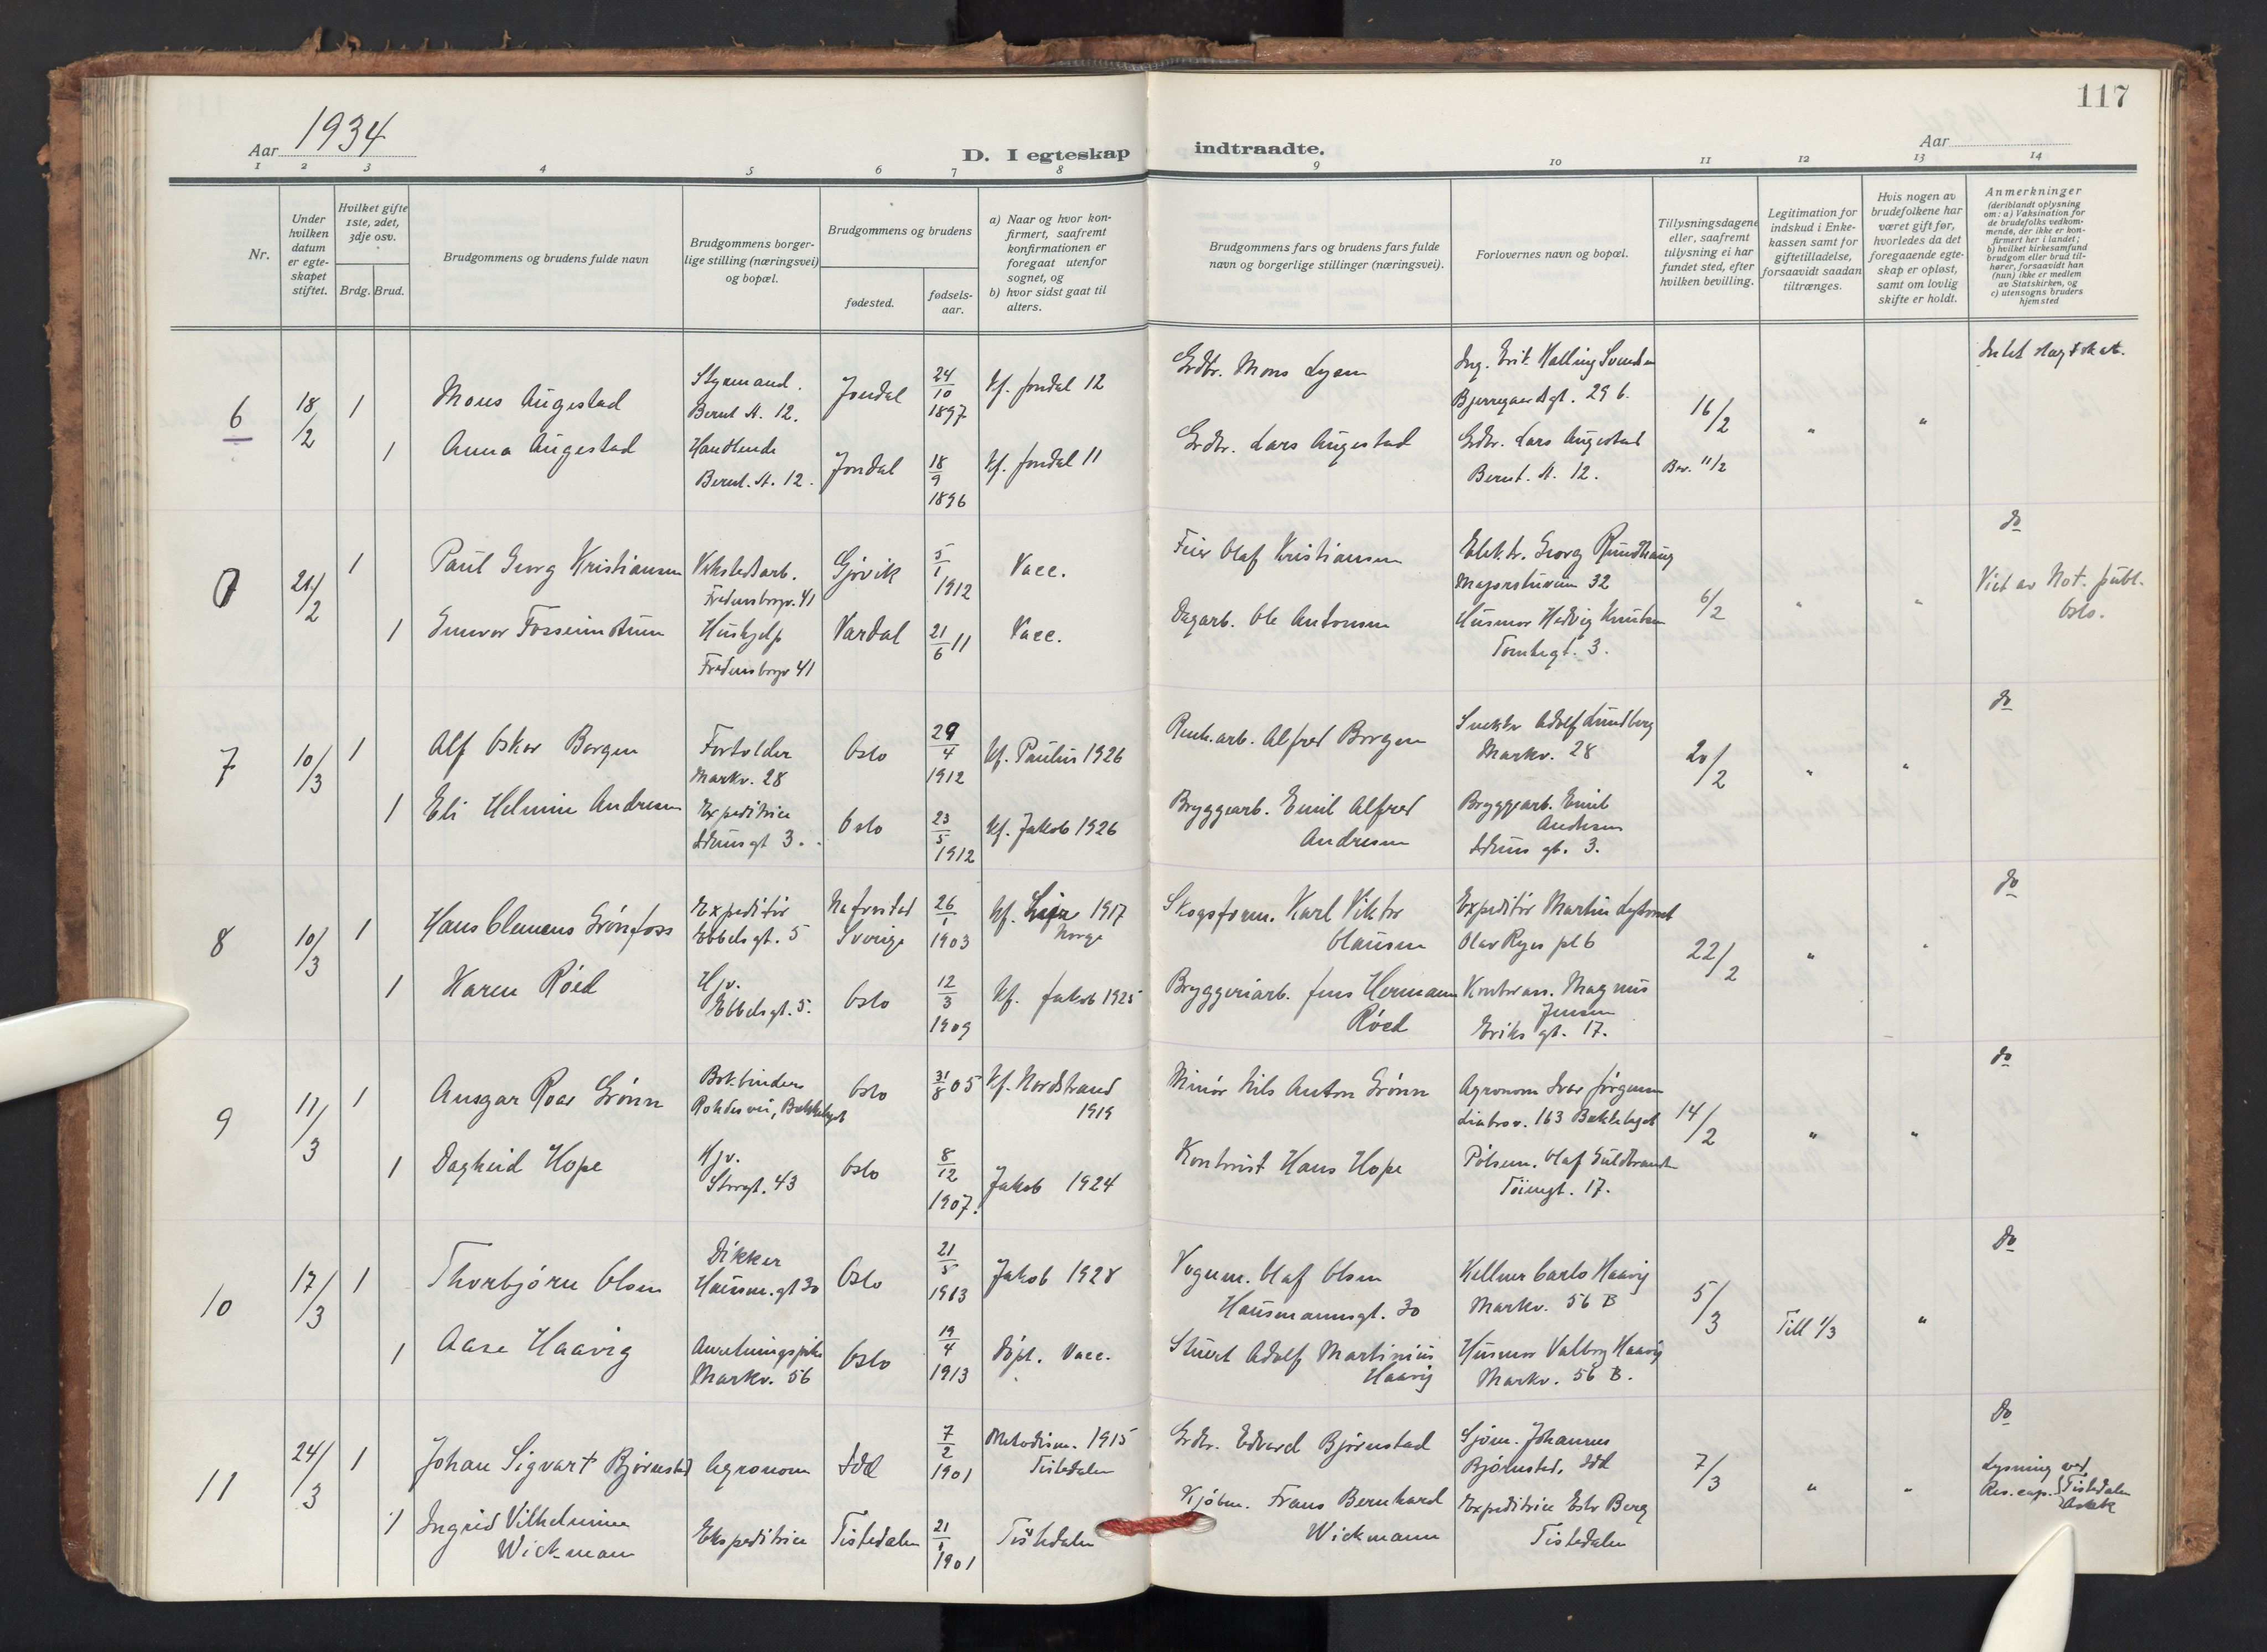 117
Aar 1934
D. I egteskap indtraadte.
Aar
1 2 3 4 5 6 7 8 9 10 11 12 13 14
Nr.
Under hvilken datum er egteskapet stiftet.
Hvilket gifte 1ste, 2det, 3dje osv.
Brdg. Brud.
Brudgommens og brudens fulde navn
Brudgommens borgerlige stilling (næringsvei) og bopæl.
Brudgommens og brudens
fødested.
fødselsaar.
a) Naar og hvor konfirmert, saafremt konfirmationen er foregaat utenfor sognet, og
b) hvor sidst gaat til alters.
Brudgommens fars og brudens fars fulde navn og borgerlige stillinger (næringsvei).
Forlovernes navn og bopæl.
Tillysningsdagene eller, saafremt tillysning ei har fundet sted, efter hvilken bevilling.
Legitimation for indskud i Enkekassen samt for giftetilladelse, forsaavidt saadan tiltrænges.
Hvis nogen av brudefolkene har været gift før, hvorledes da det foregaaende egteskap er opløst, samt om lovlig skifte er holdt.
Anmerkninger
(deriblandt oplysning om: a) Vaksination for de brudefolks vedkommende, der ikke er konfirmert her i landet;
b) hvilket kirkesamfund brudgom eller brud tilhører, forsaavidt han (hun) ikke er medlem av Statskirken, og
c) utensogns bruders hjemsted
6 18/2 1 Mons Augestad
Styrmand.
Bernt A. 12.
Jondal 24/10 1897
kf. Jondal 12
Grdbr. Mons Lysen
Ing. Erik Halling Svendsen
Bjerregaardsgt. 29 b.
16/2 " "
Intet slægtskab.
1 Anna Augestad
Bernt. A. 12.
Jondal 18/9 1896
kf. Jondal 11
Grdbr. Lars Augestad
Grdbr. Lars Augestad
Bernt. A. 12.
Bev. 11/2
0 21/2 1 Paul Georg Kristiansen
Verkstedarb.
Fredensborgv. 41
Gjøvik 5/1 1912
Vacc.
Feier Olaf Kristiansen
Elektr. Georg Rundhaug
Majorstuveien 32
6/2 " "
do
Viet av Not. publ.
Oslo.
1 Gunvor
Hushjelp
Fredensborgv 41
Vardal 21/6 11
Vacc.
Dagarb. Ole Antonsen
Husmor Hedvig Knutsen
Tomtegt. 3.
7 10/3 1 Alf Oskar Borgen
Forkolder
Markv. 28
Oslo 29/4 1912
kf. Paulus 1926
Renh.arb. Alfred Borgen
Snekker Adolf Lundberg
Markv. 28
20/2 " "
do
1 Eli Helmine Andresen
Expeditrice
Iduns gt 3.
Oslo 23/5 1912
kf. Jakob 1926
Bryggearb. Emil Alfred
Andresen
Bryggearb. Emil
Andresen
Iduns gt. 3.
8 10/3 1 Hans Clemens Grønfoss
Expeditør
Ebbelsgt. 5
Sverige 26/1 1903
kf. 1917
Norge
Skogsform. Karl Viktor
Clausen
Expeditør Martin
Olav Ryes pl 6
22/2 " "
do
1 Karen Røed
Hjv.
Ebbelsgt. 5.
Oslo 12/3 1909
kf. Jakob 1925
Bryggeriarb. Jens Hermann
Røed
Kontorass. Magnus
Jensen
Eriks gt. 17.
9 11/3 1 Ansgar Roar Grønn
Bokbinder
Rohdesvei, Bækkelaget
Oslo 31/8 05
kf. Nordstrand
1919
Minør Nils Anton Grønn
Agronom Ivar Jørgensen
Liabrov. 163 Bækkelaget
14/2 " "
do
1 Dagheid Hope
Hjv.
Storgt. 43
Oslo 8/12 1907.
Jakob 1924
Kontorist Hans Hope
Pølsem. Olaf Guldbrandsen
Tøiengt. 17.
10 17/3 1 Thorbjørn Olsen
Dikker
Hausm.gt 30
Oslo 21/5 1913
Jakob 1928
Vognm. Olaf Olsen
Hausmannsgt. 30
Kellner Carlo Haavig
Markv. 56 B
5/3 Till 1/3 "
do
1 Aase Haavig
Anretningspike
Markv. 56
Oslo 19/4 1913
døpt. Vacc.
Stuert Adolf Martinius
Haavig
Husmor Valborg Haavig
Markv. 56 B.
11 24/3 1 Johan Sigvart Bjørnstad
Agronom
Idd 7/2 1901
Metodism. 1915
Tistedalen
Grdbr. Edvard Bjørnstad
Sjøm. Johannes
Bjørnstad, Idd
7/3 " "
do
Lysning ved
Res. cap. Tistedalen
1 Ingrid Vilhelmine
Wickmann
Ekspeditrice
Tistedalen 21/1 1901
Tistedalen
Kjøbm. Frans Bernhard
Wickmann
Expeditrice Ester Berg
Tistedalen